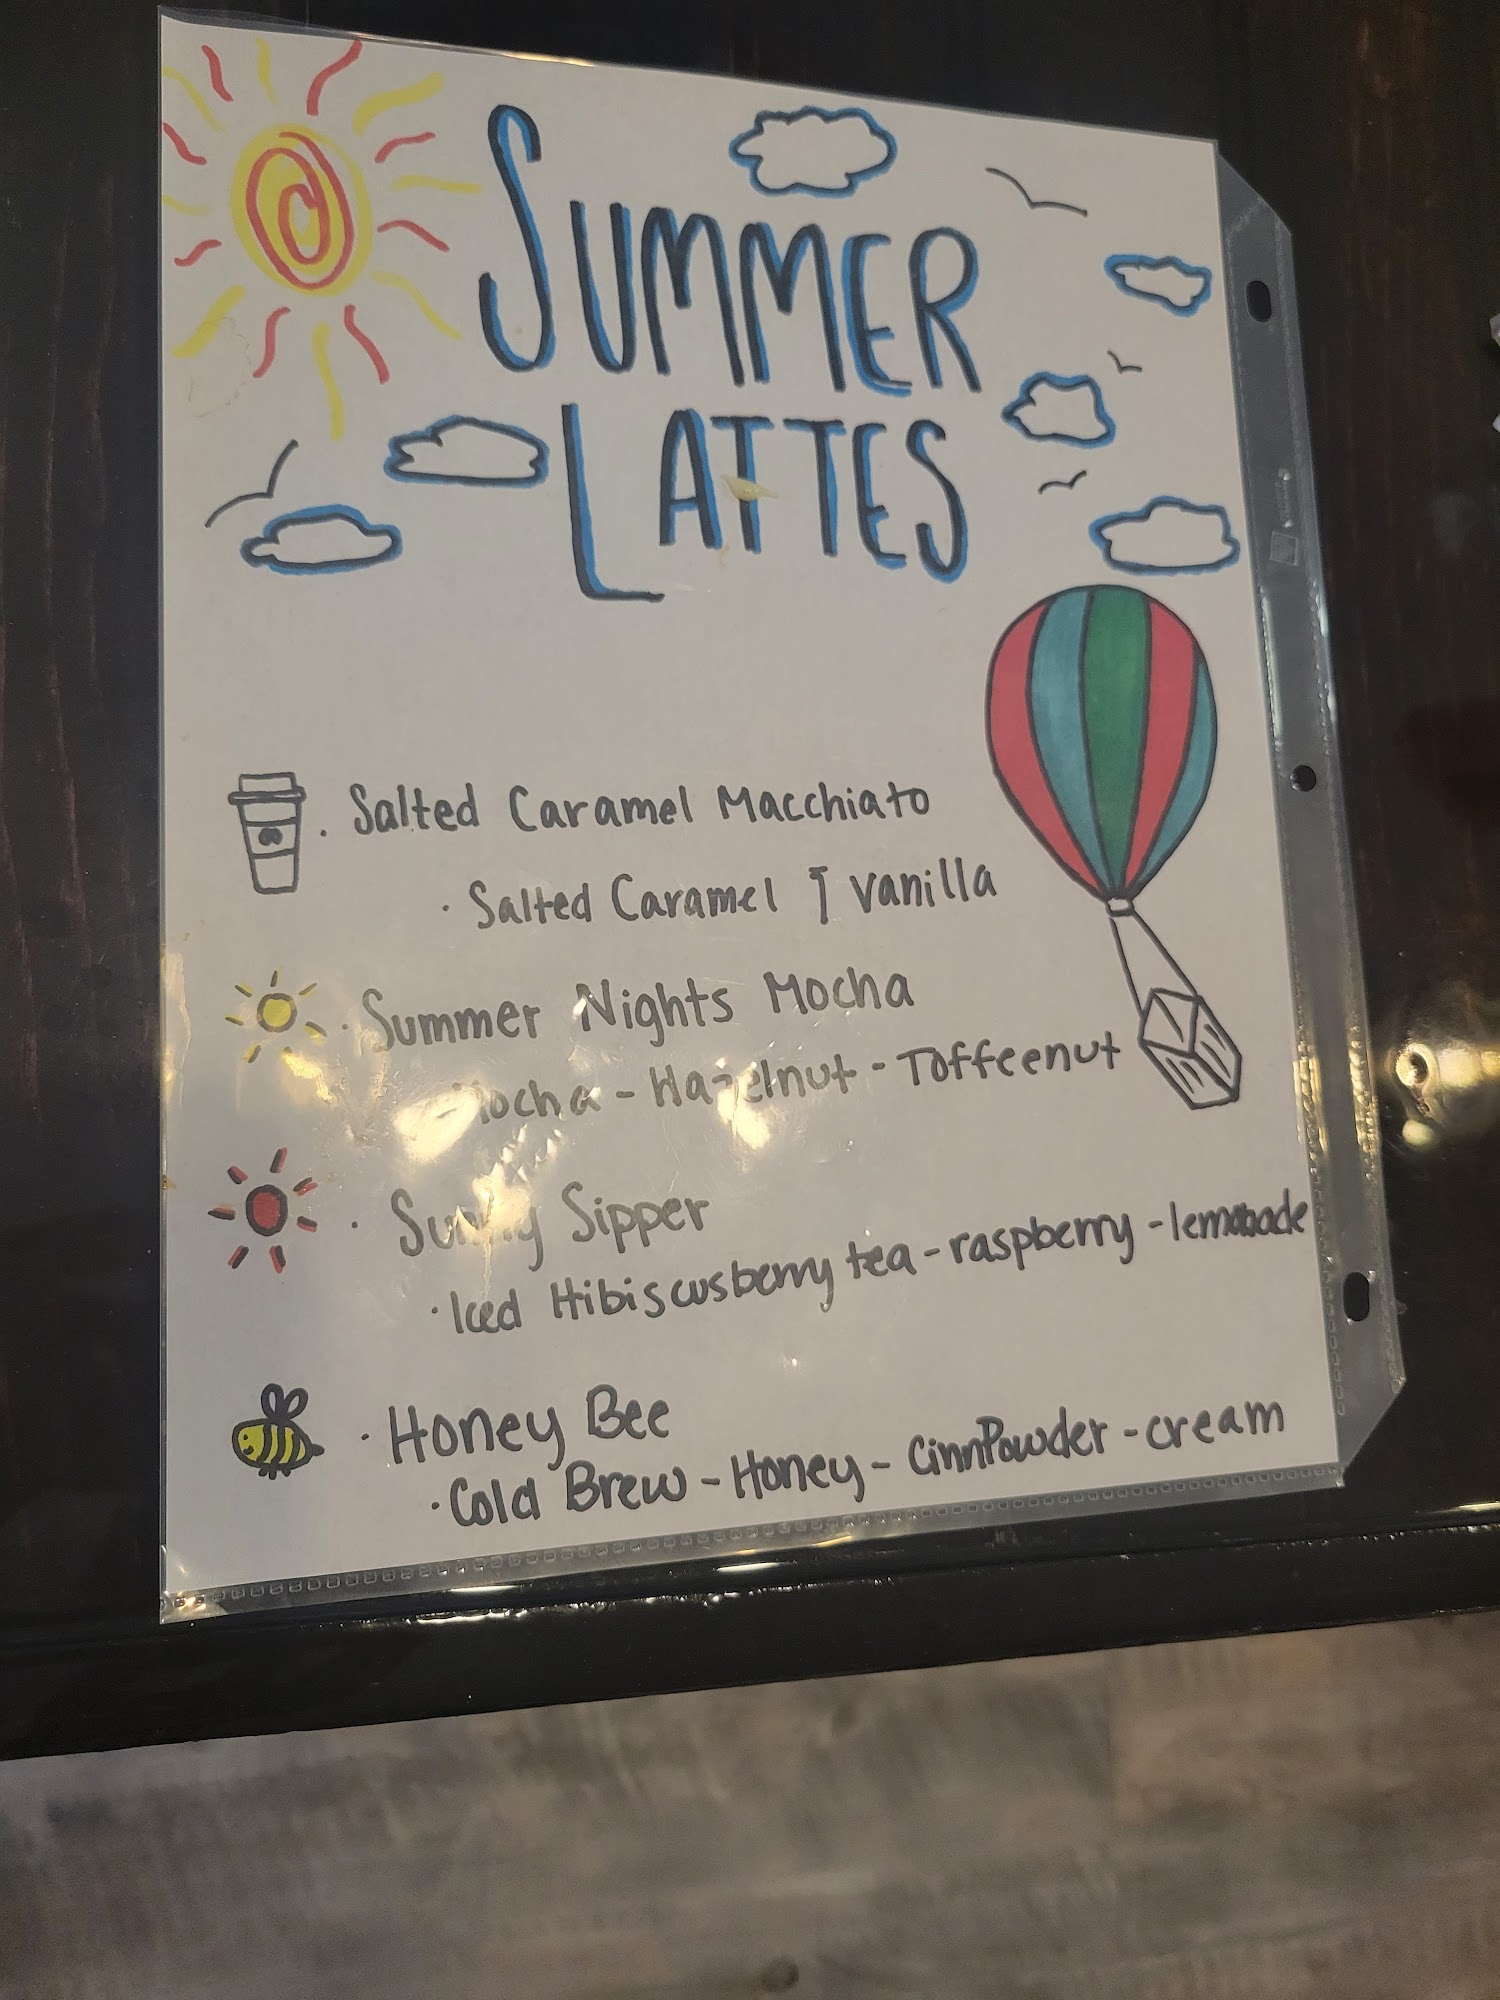 SUMMER
LATTES
· Salted Caramel Macchiato
· Salted Caramel & vanilla
· Summer Nights Mocha
Mocha - Hazelnut - Toffeenut
· Sunny Sipper
· Iced Hibiscusberry tea - raspberry - lemonade
· Honey Bee
· Cold Brew - Honey - CinnPowder - cream